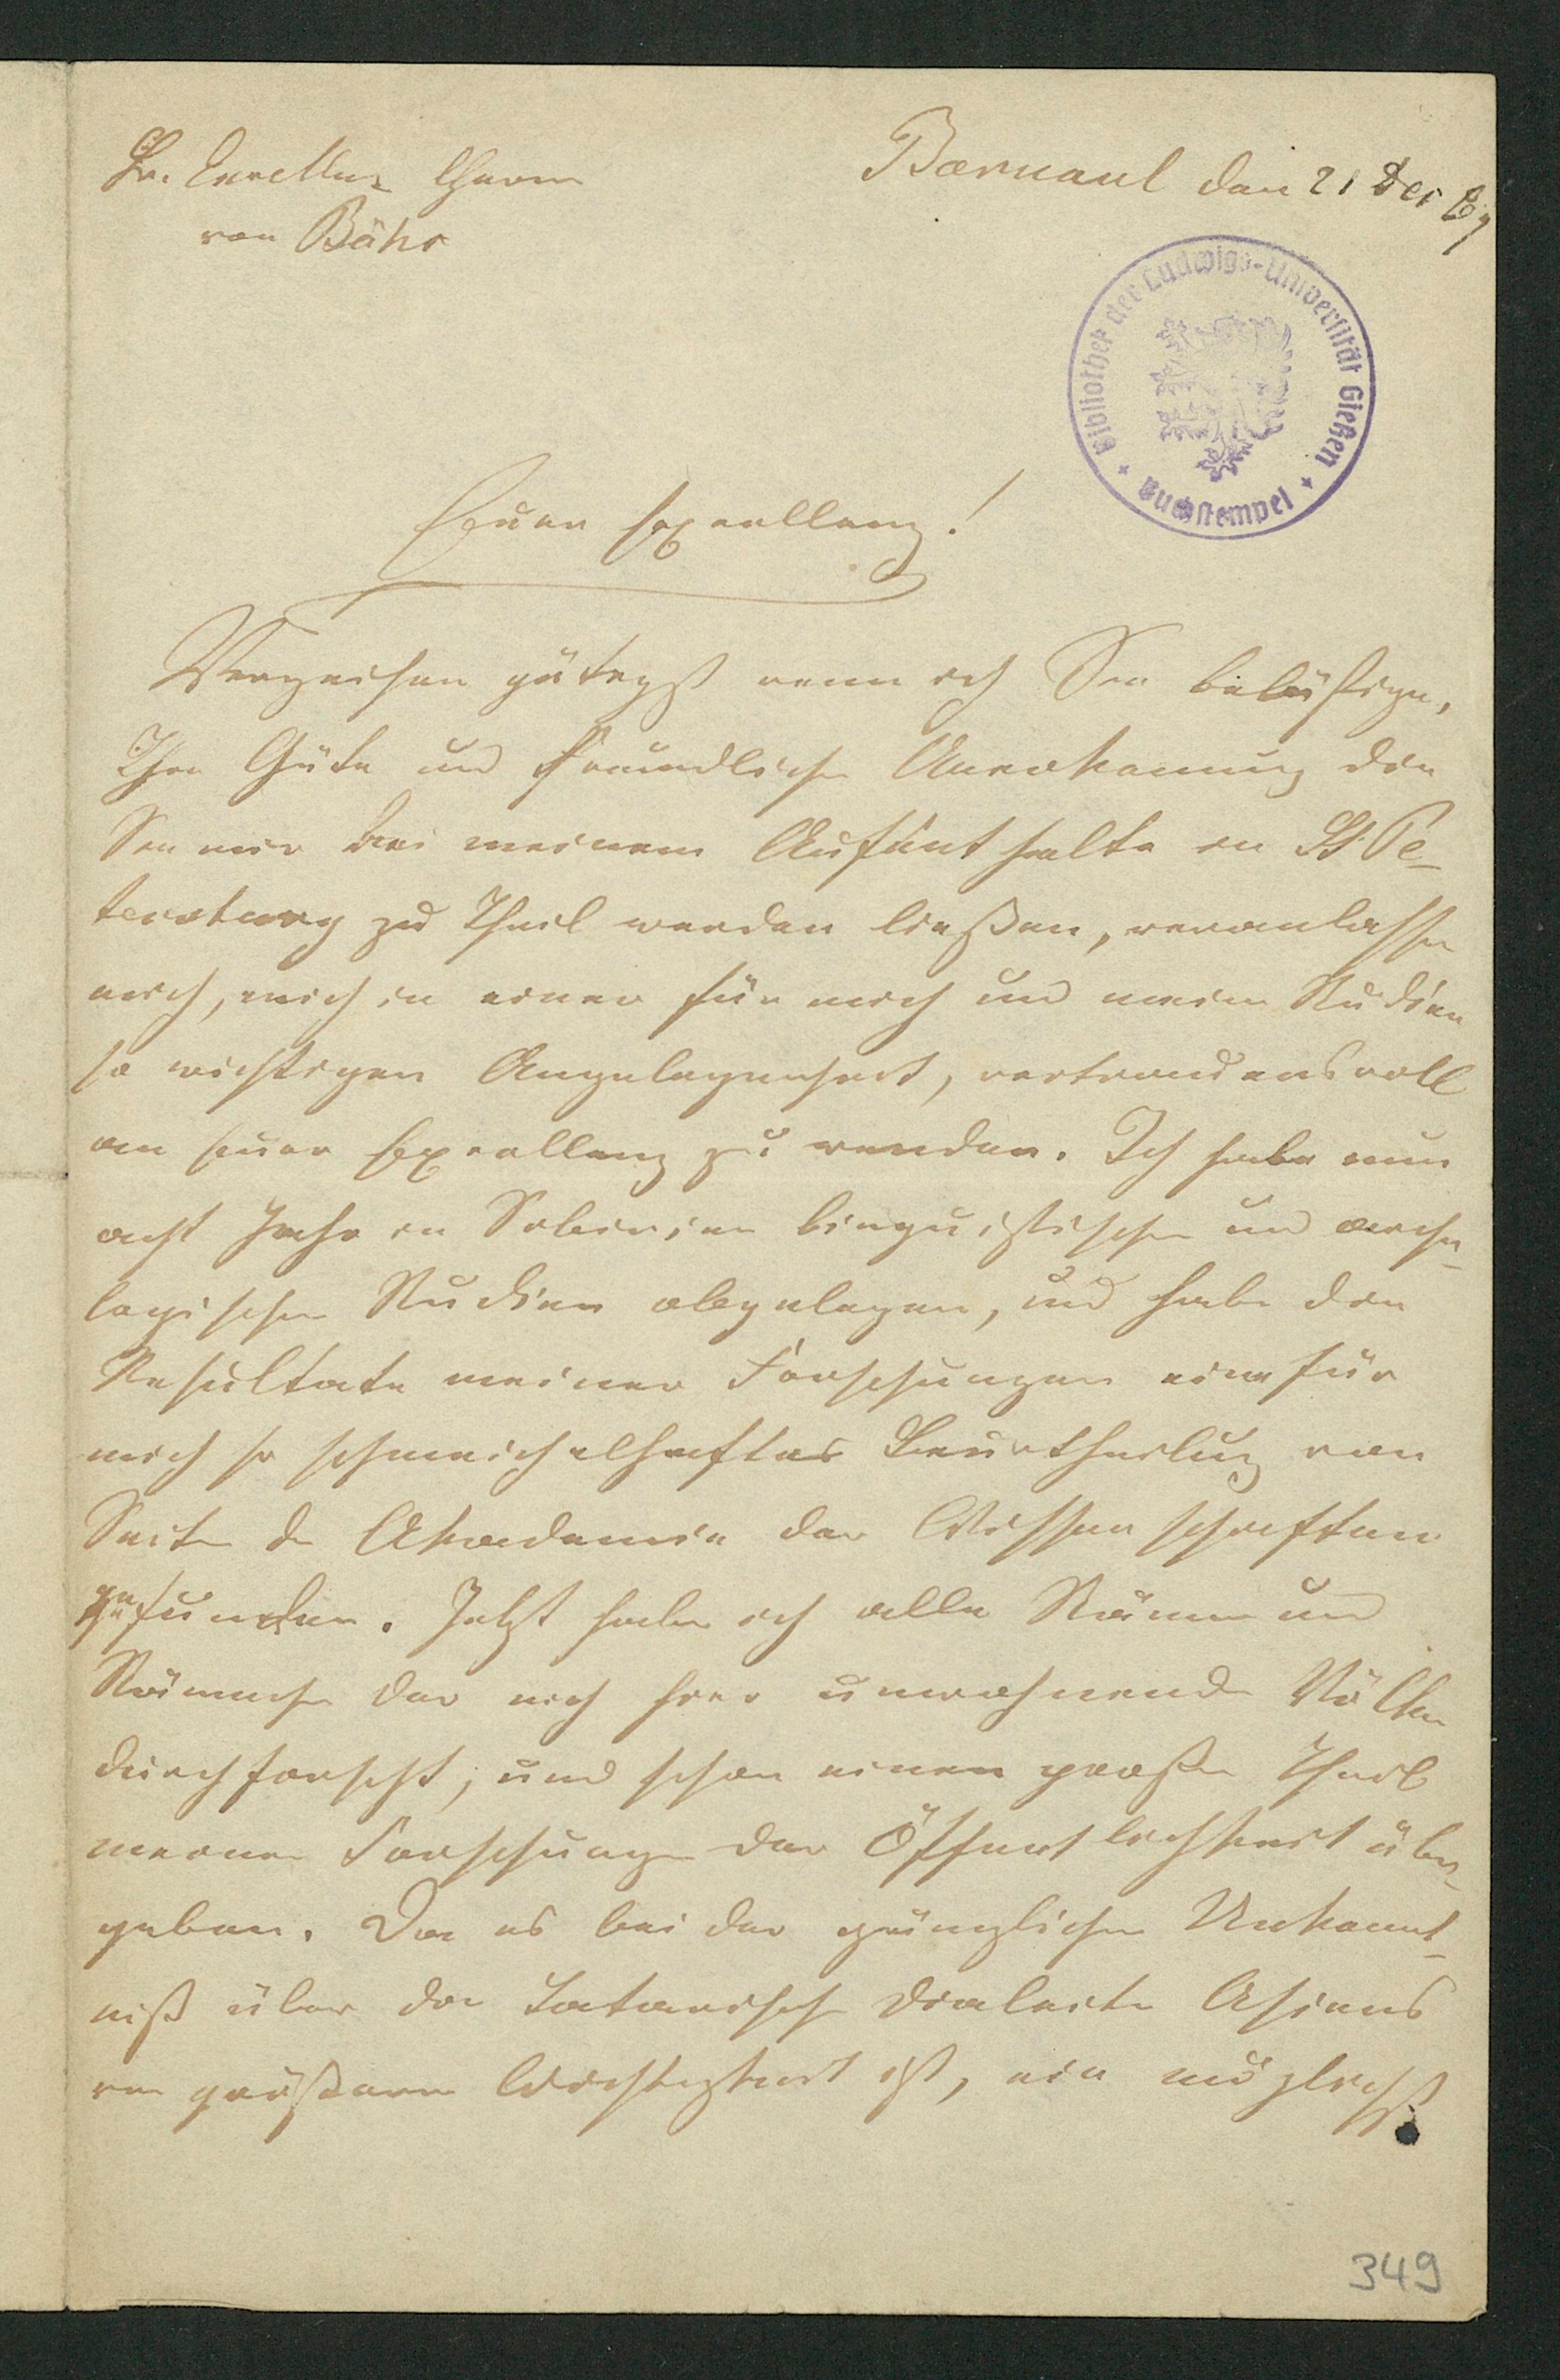 Sr. Excellenz Herrn
von Bähr
Barnaul den 21 Dec 67
Bibliothek der Ludwigs-Universität Gießen
Buchstempel
Euer Excellenz!
Verzeihen gütigst wenn ich Sie belästige,
Ihre Güte und freundliche Anerkennung die
Sie mir bei meinem Aufenthalte in St. Pe-
tersburg zu Theil werden ließen, veranlassen
mich, mich in einer für mich und meine Studien
so wichtigen Angelegenheit, vertrauensvoll
an Euer Excellenz zu wenden. Ich habe nun
acht Jahr in Sibirien linguistischen und archeo-
logischen Studien obgelegen, und habe die
Resultate meiner Forschungen eine für
mich so schmeichelhaftes Beurtheilung von
Seiten der Akademie der Wissenschaften
gefunden. Jetzt habe ich alle Stämme und
der mich hier umwohnenden Völker
durchforscht, und schon einen großen Theil
meiner Forschungen der Öffentlichkeit über-
geben. Da es bei der gänzlichen Unkennt-
niß über die Tatarischen Dialecte Asiens
von größerer Wichtigkeit ist, ein möglichst
349